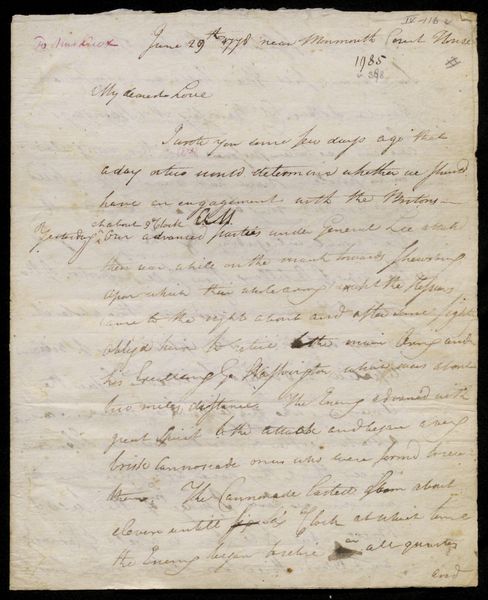 IV-116
To Mrs Knox
June 29th 1778 near Monmouth Court House
1985
398
My dearest Love
I wrote you some few days ago that
a day or two would determine whether we should
have an engagement with the Britons—
at about 9 oClock AM
Yesterday Our advanced parties under General Lee attack
their rear while on the march towards Shrewsbury
upon which their whole army except the Hessians
came to the right about and after some fight
oblig'd him to retire to the main Army and
his Excellency Gl Washington which was about
two miles distance. The Enemy advanced with
great spirit to the attack and began a very
brisk Cannonade on us who were formd to receive
them The Cannonade lasted from about
eleven untill six oClock at which time
the Enemy began to retire on all quarters
and